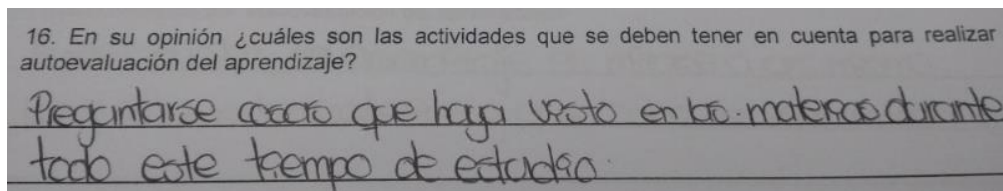 16. En su opinión ¿cuáles son las actividades que se deben tener en cuenta para realizar
autoevaluación del aprendizaje?
Preguntarse cosas que haya visto en las materias durante
todo este tiempo de estudio.